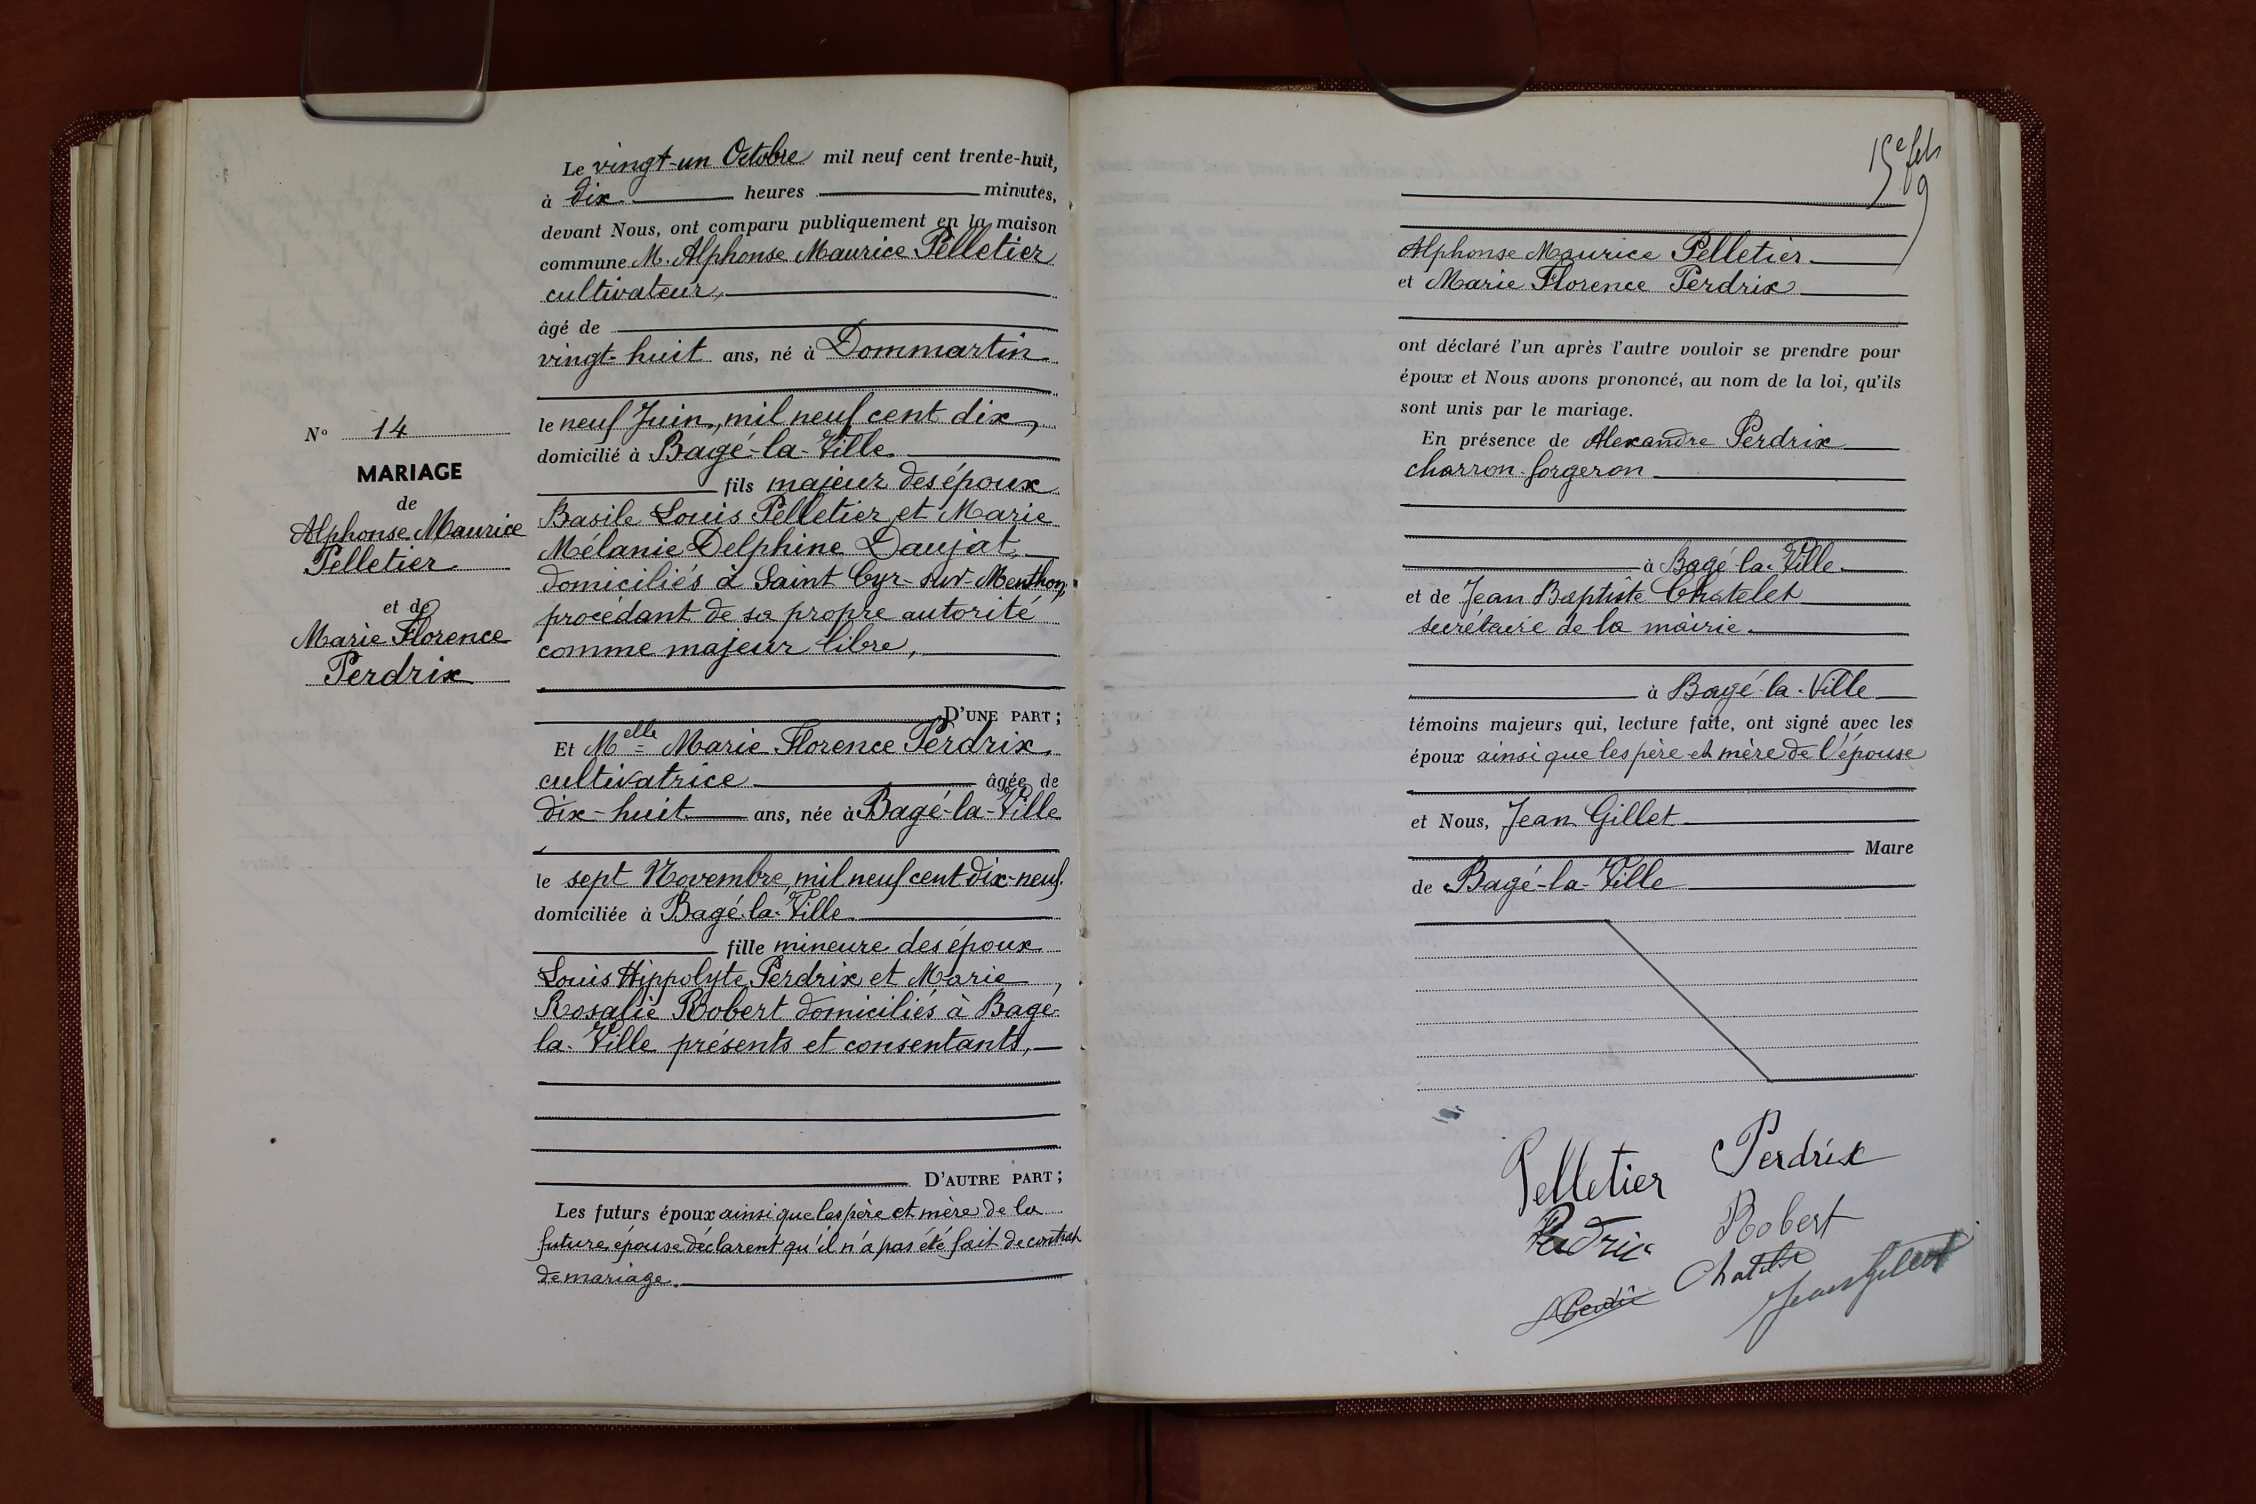 Le vingt-un Octobre mil neuf cent trente-huit,
à dix heures minutes,
devant Nous, ont comparu publiquement en la maison
commune M. Alphonse Maurice Pelletier
cultivateur,
âgé de
vingt-huit ans, né à Dommartin
le neuf Juin, mil neuf cent dix,
domicilié à Bâgé-la-Ville
fils majeur des époux
Basile Louis Pelletier et Marie
Mélanie Delphine Daujat,
domiciliés à Saint Cyr-sur-Menthon,
procédant de sa propre autorité
comme majeur libre,
D'UNE PART;
Et Melle Marie Florence Perdrix,
cultivatrice âgée de
dix-huit ans, née à Bagé-la-Ville
le sept Novembre, mil neuf cent dix-neuf.
domiciliée à Bagé-la-Ville
fille mineure des époux
Louis Hippolyte Perdrix et Marie
Rosalie Robert domiciliés à Bagé-
la-Ville présents et consentants,
D'AUTRE PART;
Les futurs époux ainsi que les père et mère de la
future épouse déclarent qu'il n'a pas été fait de contrat
de mariage.
N° 14
MARIAGE
de
Alphonse Maurice
Pelletier
et de
Marie Florence
Perdrix
Alphonse Maurice Pelletier
et Marie Florence Perdrix
ont déclaré l'un après l'autre vouloir se prendre pour
époux et Nous avons prononcé, au nom de la loi, qu'ils
sont unis par le mariage.
En présence de Alexandre Perdrix
charron-forgeron
à Bagé-la-Ville
et de Jean Baptiste Chatelet
secrétaire de la mairie
à Bagé-la-Ville
témoins majeurs qui, lecture faite, ont signé avec les
époux ainsi que les père et mère de l'épouse
et Nous, Jean Gillet
Maire
de Bagé-la-Ville
Pelletier Perdrix
Perdrix Robert
Chatelet
Jean Gillet